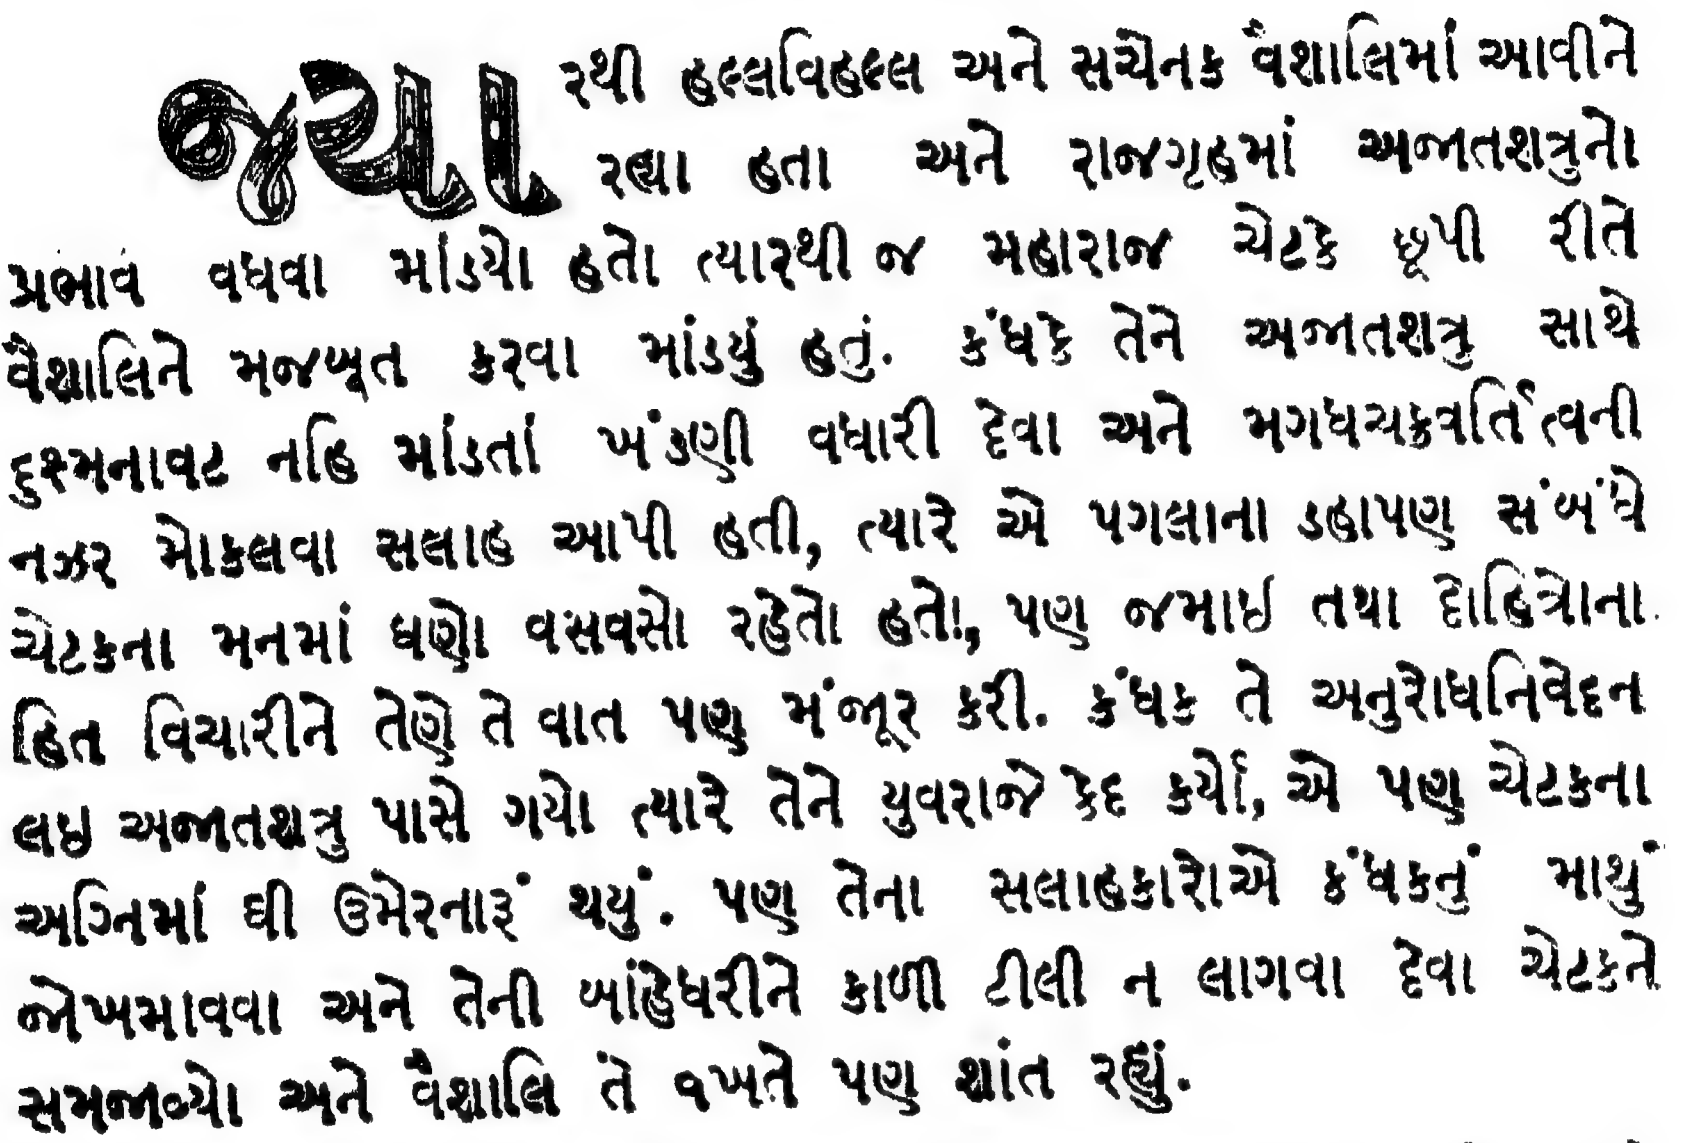 જ્યારથી હલ્લવિહલ્લ અને સચેનક વૈશાલિમાં આવીને
રહ્યા હતા અને રાજગૃહમાં અજાતશત્રુનો
પ્રભાવ વધવા માંડયો હતો ત્યારથી જ મહારાજ ચેટકે છૂપી રીતે
વૈશાલિને મજબૂત કરવા માંડયું હતું. કંધકે તેને અજાતશત્રુ સાથે
દુશ્મનાવટ નહિ માંડતાં ખંડણી વધારી દેવા અને મગધચક્રવર્તિત્વની
નઝર મોકલવા સલાહ આપી હતી, ત્યારે એ પગલાના ડહાપણ સંબંધે
ચેટકના મનમાં ઘણો વસવસો રહેતો હતો, પણ જમાઇ તથા દોહિત્રોના
હિત વિચારીને તેણે તે વાત પણ મંજૂર કરી. કંધક તે અનુરોધનિવેદન
લઇ અજાતશત્રુ પાસે ગયો ત્યારે તેને યુવરાજે કેદ કર્યો, એ પણ ચેટકના
અગ્નિમાં ઘી ઉમેરનારૂં થયું. પણ તેના સલાહકારોએ કંધકનું માથું
જોખમાવવા અને તેની બાંહેધરીને કાળી ટીલી ન લાગવા દેવા ચેટકને
સમજાવ્યો અને વૈશાલિ તે વખતે પણ શાંત રહ્યું.